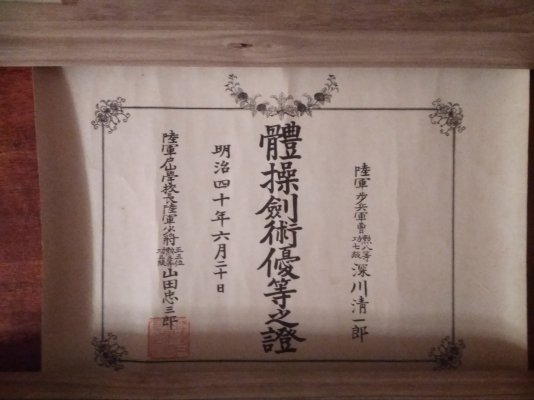 陸軍歩兵軍曹勲八等功七級深川清一郎
體操劍術優等之證
明治四十年六月二十日
陸軍戸山學校長陸軍少將正五位勲三等功五級山田忠三郎